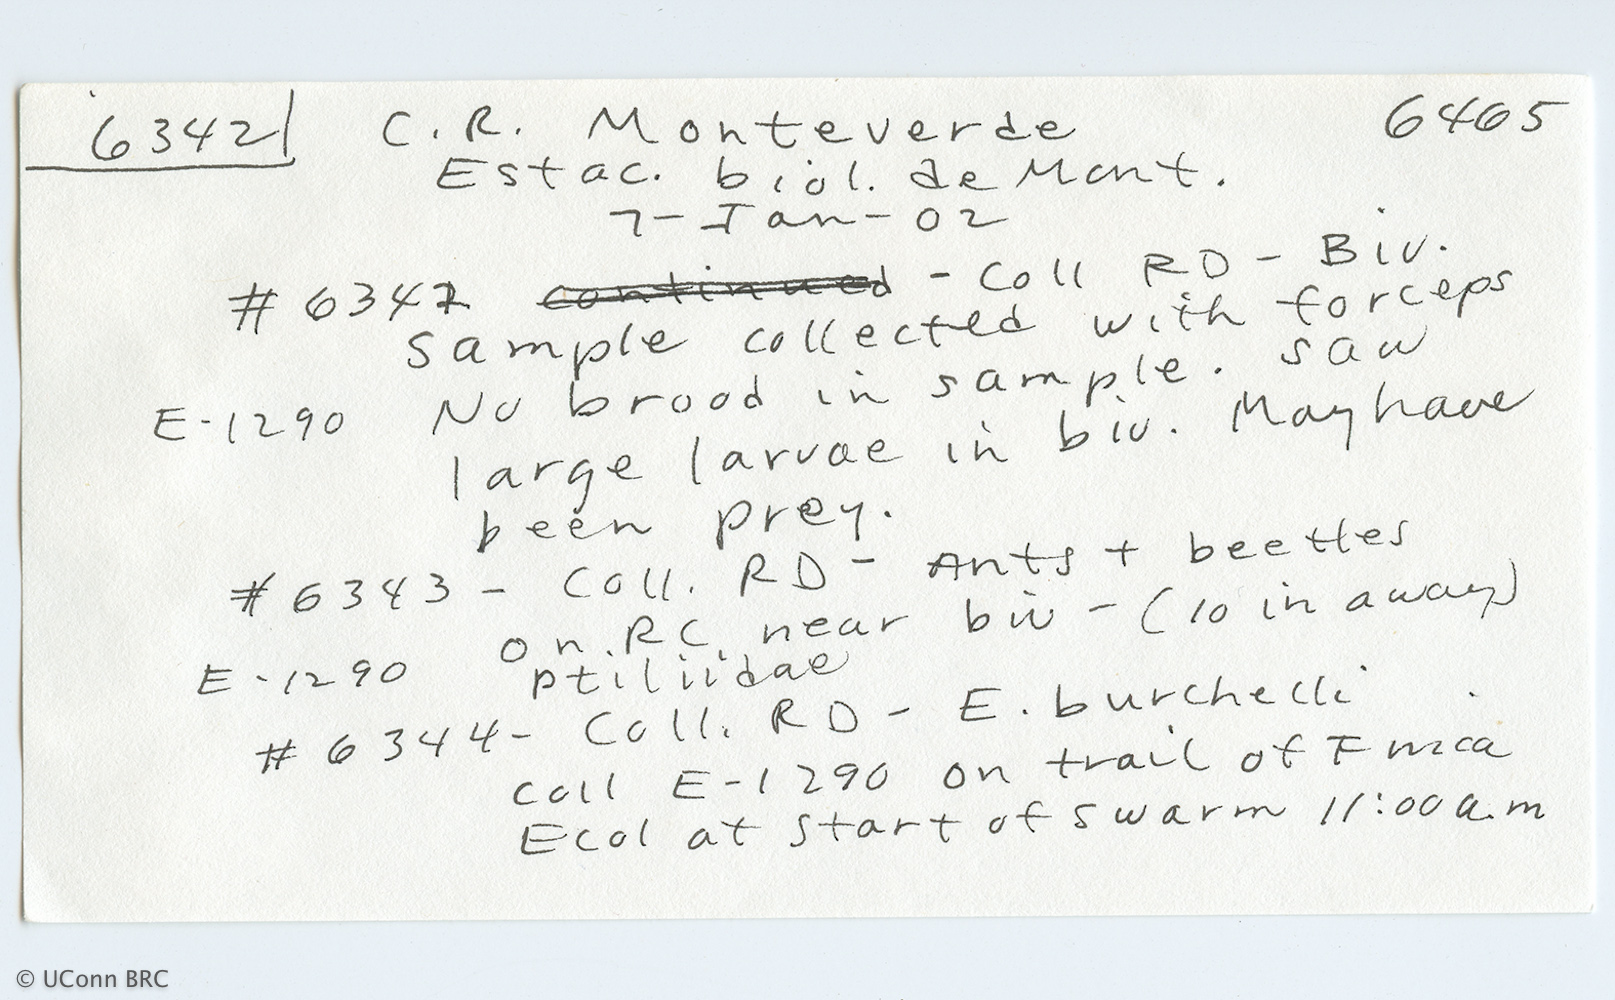 6342 C.R. Monteverde 6465
Estac. biol. de Mont.
7-Jan-02
#6342 continued - Coll RD - Biv.
sample collected with forceps
E-1290 No brood in sample. saw
large larvae in biv. May have
been prey.
#6343 - Coll. RD - Ants + beetles
on RC near biv - (10 in away)
E-1290 ptiliidae
#6344 - Coll. RD - E. burchelli
coll E-1290 on trail of Finca
Ecol at start of swarm 11:00 a.m
© UConn BRC